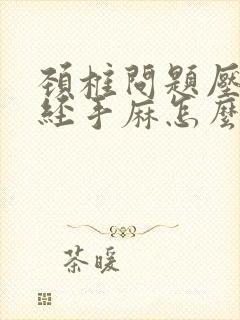 頚椎問題壓
經手麻怎麼
茶暖